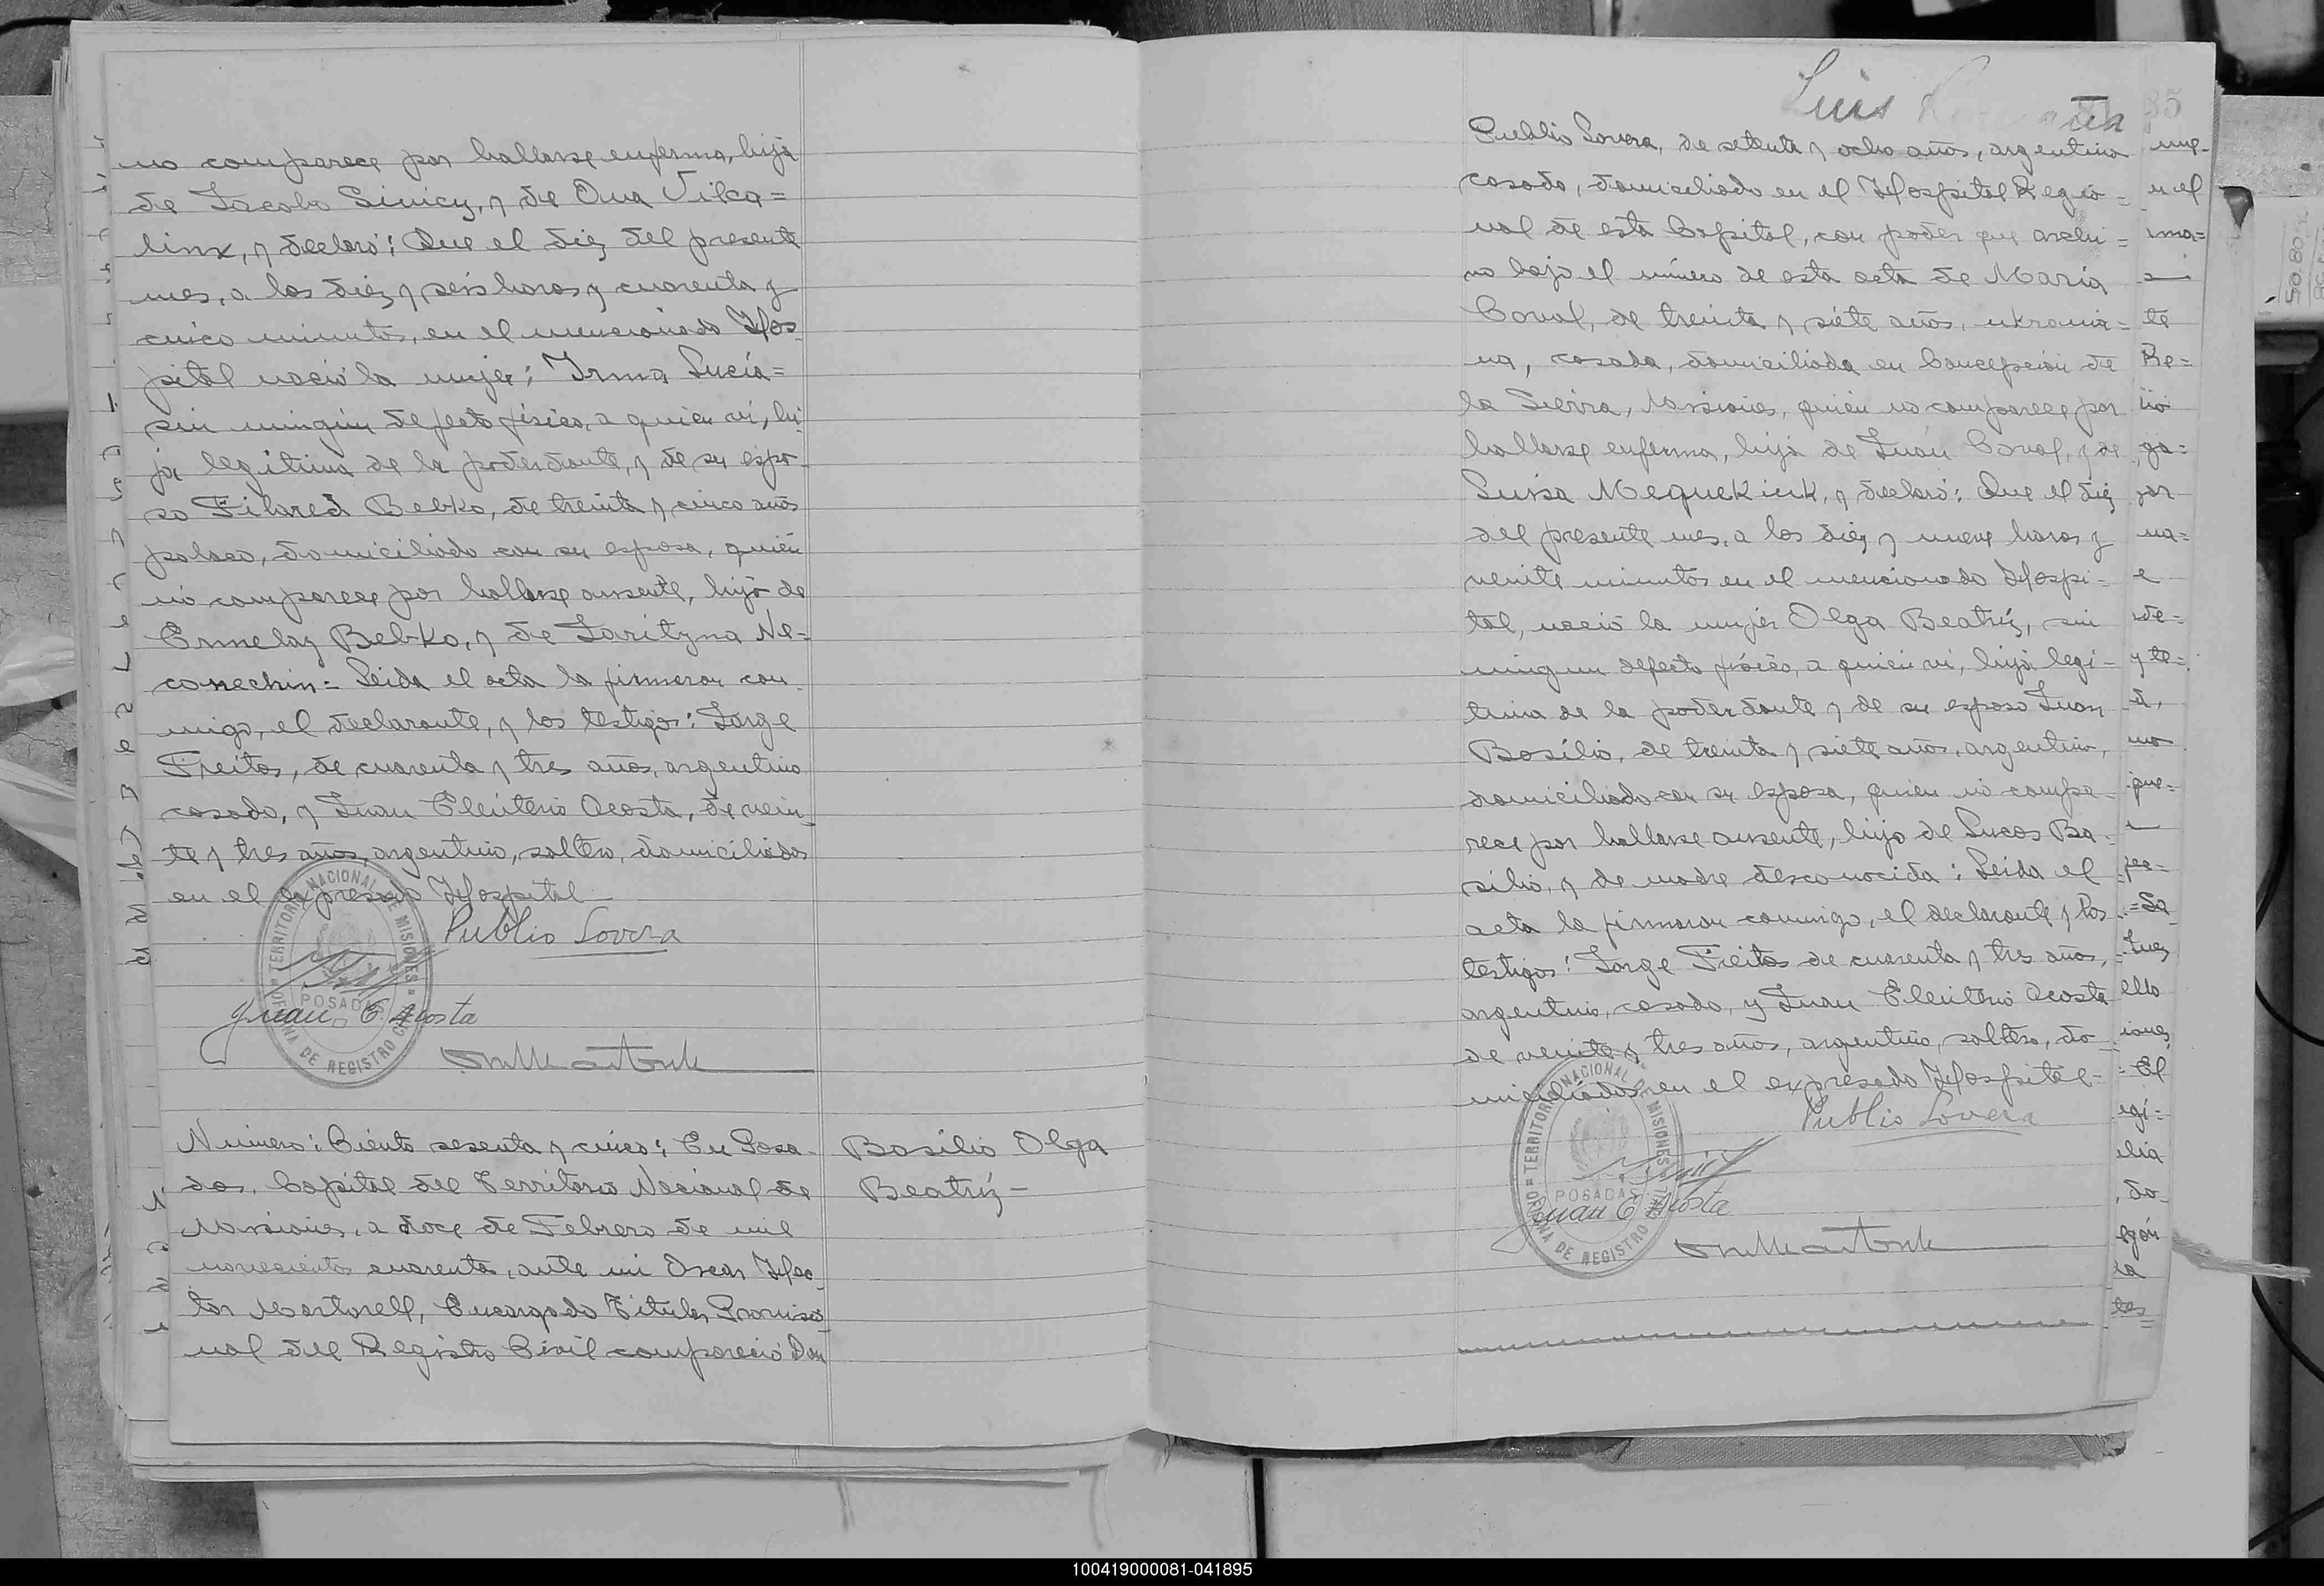 no comparece por hallarse enferma, hija
de Jacobo Sinicy, y de Ana Vilca=
linx, y declaró: Que el diez del presente
mes, a las diez y seis horas y cuarenta y
cinco minutos, en el mencionado Hos-
pital nació la mujer: Irma Lucía=
sin ningún defecto físico, a quien ví, hi-
ja legítima de la poderdante, y de su espo-
so Filared Bebko, de treinta y cinco años
polaco, domiciliado con su esposa, quién
no comparece por hallarse ausente, hijo de
Ermelay Bebko, y de Jarityna Ne=
conechin= Leida el acta la firmaron con-
migo, el declarante, y los testigos: Jorge
Freitas, de cuarenta y tres años, argentino
casado, y Juan Eleuterio Acosta, de vein-
te y tres años, argentino, soltero, domiciliados
en el expresado Hospital
Publio Lovera
Juan E Acosta
TERRITORIO NACIONAL DE MISIONES
POSADAS
OFICINA DE REGISTRO CIVIL
Número: Ciento sesenta y cinco: En Posa-
das, Capital del Territorio Nacional de
Misiones, a doce de Febrero de mil
novecientos cuarenta, ante mi Oscar Hec-
tor Martorell, Encargado Titular Provisio-
nal del Registro Civil compareció Don
Basilio Olga
Beatriz-
Luis
85
Publio Lovera, de setenta y ocho años, argentino
casado, domiciliado en el Hospital Regio=
nal de esta Capital, con poder que archi=
vo bajo el número de esta acta de María
Coval, de treinta y siete años, ukrania=
na, casada, domiciliada en Concepción de
la Sierra, Misiones, quién no comparece por
hallarse enferma, hija de Juan Coval, y de
Luisa Mequekiuk, y declaró: Que el diez
del presente mes, a las diez y nueve horas y
veinte minutos en el mencionado Hospi-
tal, nació la mujer Olga Beatríz, sin
ningun defecto físico, a quién ví, hija legí-
tima de la poderdante y de su esposo Juan
Basilio, de treinta y siete años, argentino,
domiciliado con su esposa, quien no compa-
rece por hallarse ausente, hijo de Lucas Ba-
silio, y de madre desconocida: Leida el
acta la firmaron conmigo, el declarante y los
testigos: Jorge Freitas de cuarenta y tres años,
argentino, casado, y Juan Eleuterio Acosta
de veinte y tres años, argentino, soltero, do-
miciliados en el expresado Hospital-
Publio Lovera
Juan E Acosta
TERRITORIO NACIONAL DE MISIONES
POSADAS
OFICINA DE REGISTRO CIVIL
100419000081-041895